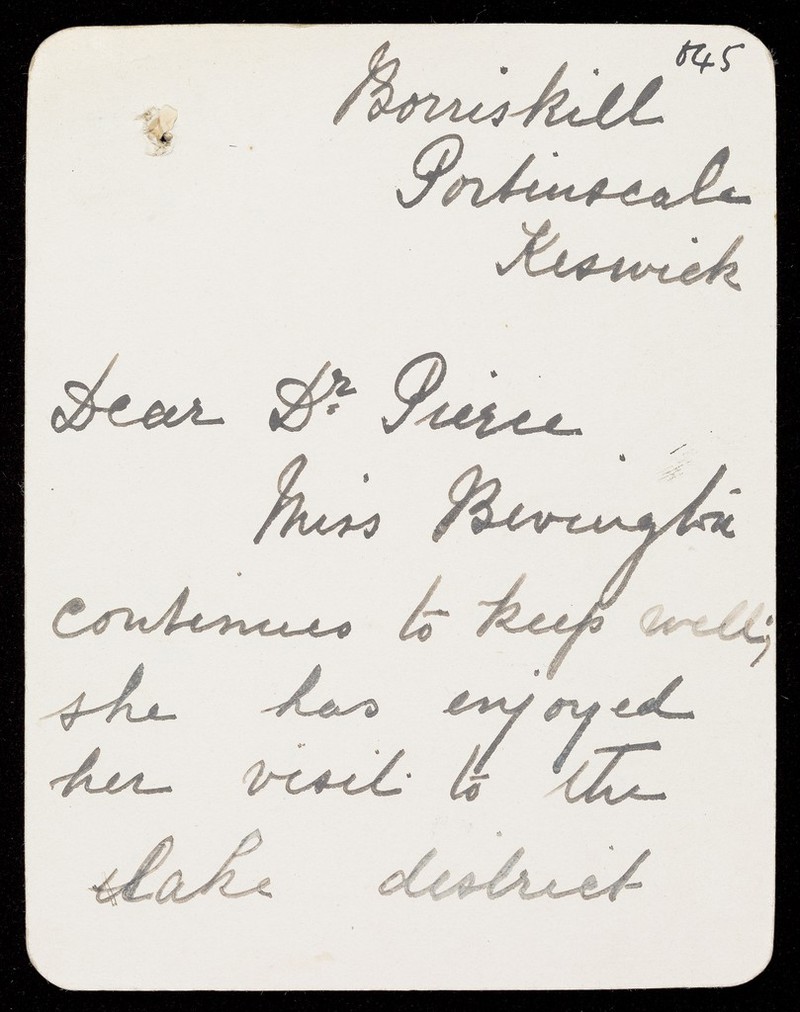 645
Borriskill
Portinscale
Keswick
Dear Dr. Pierce
Miss Bevington
continues to keep well;
she has enjoyed
her visit to the
Lake district